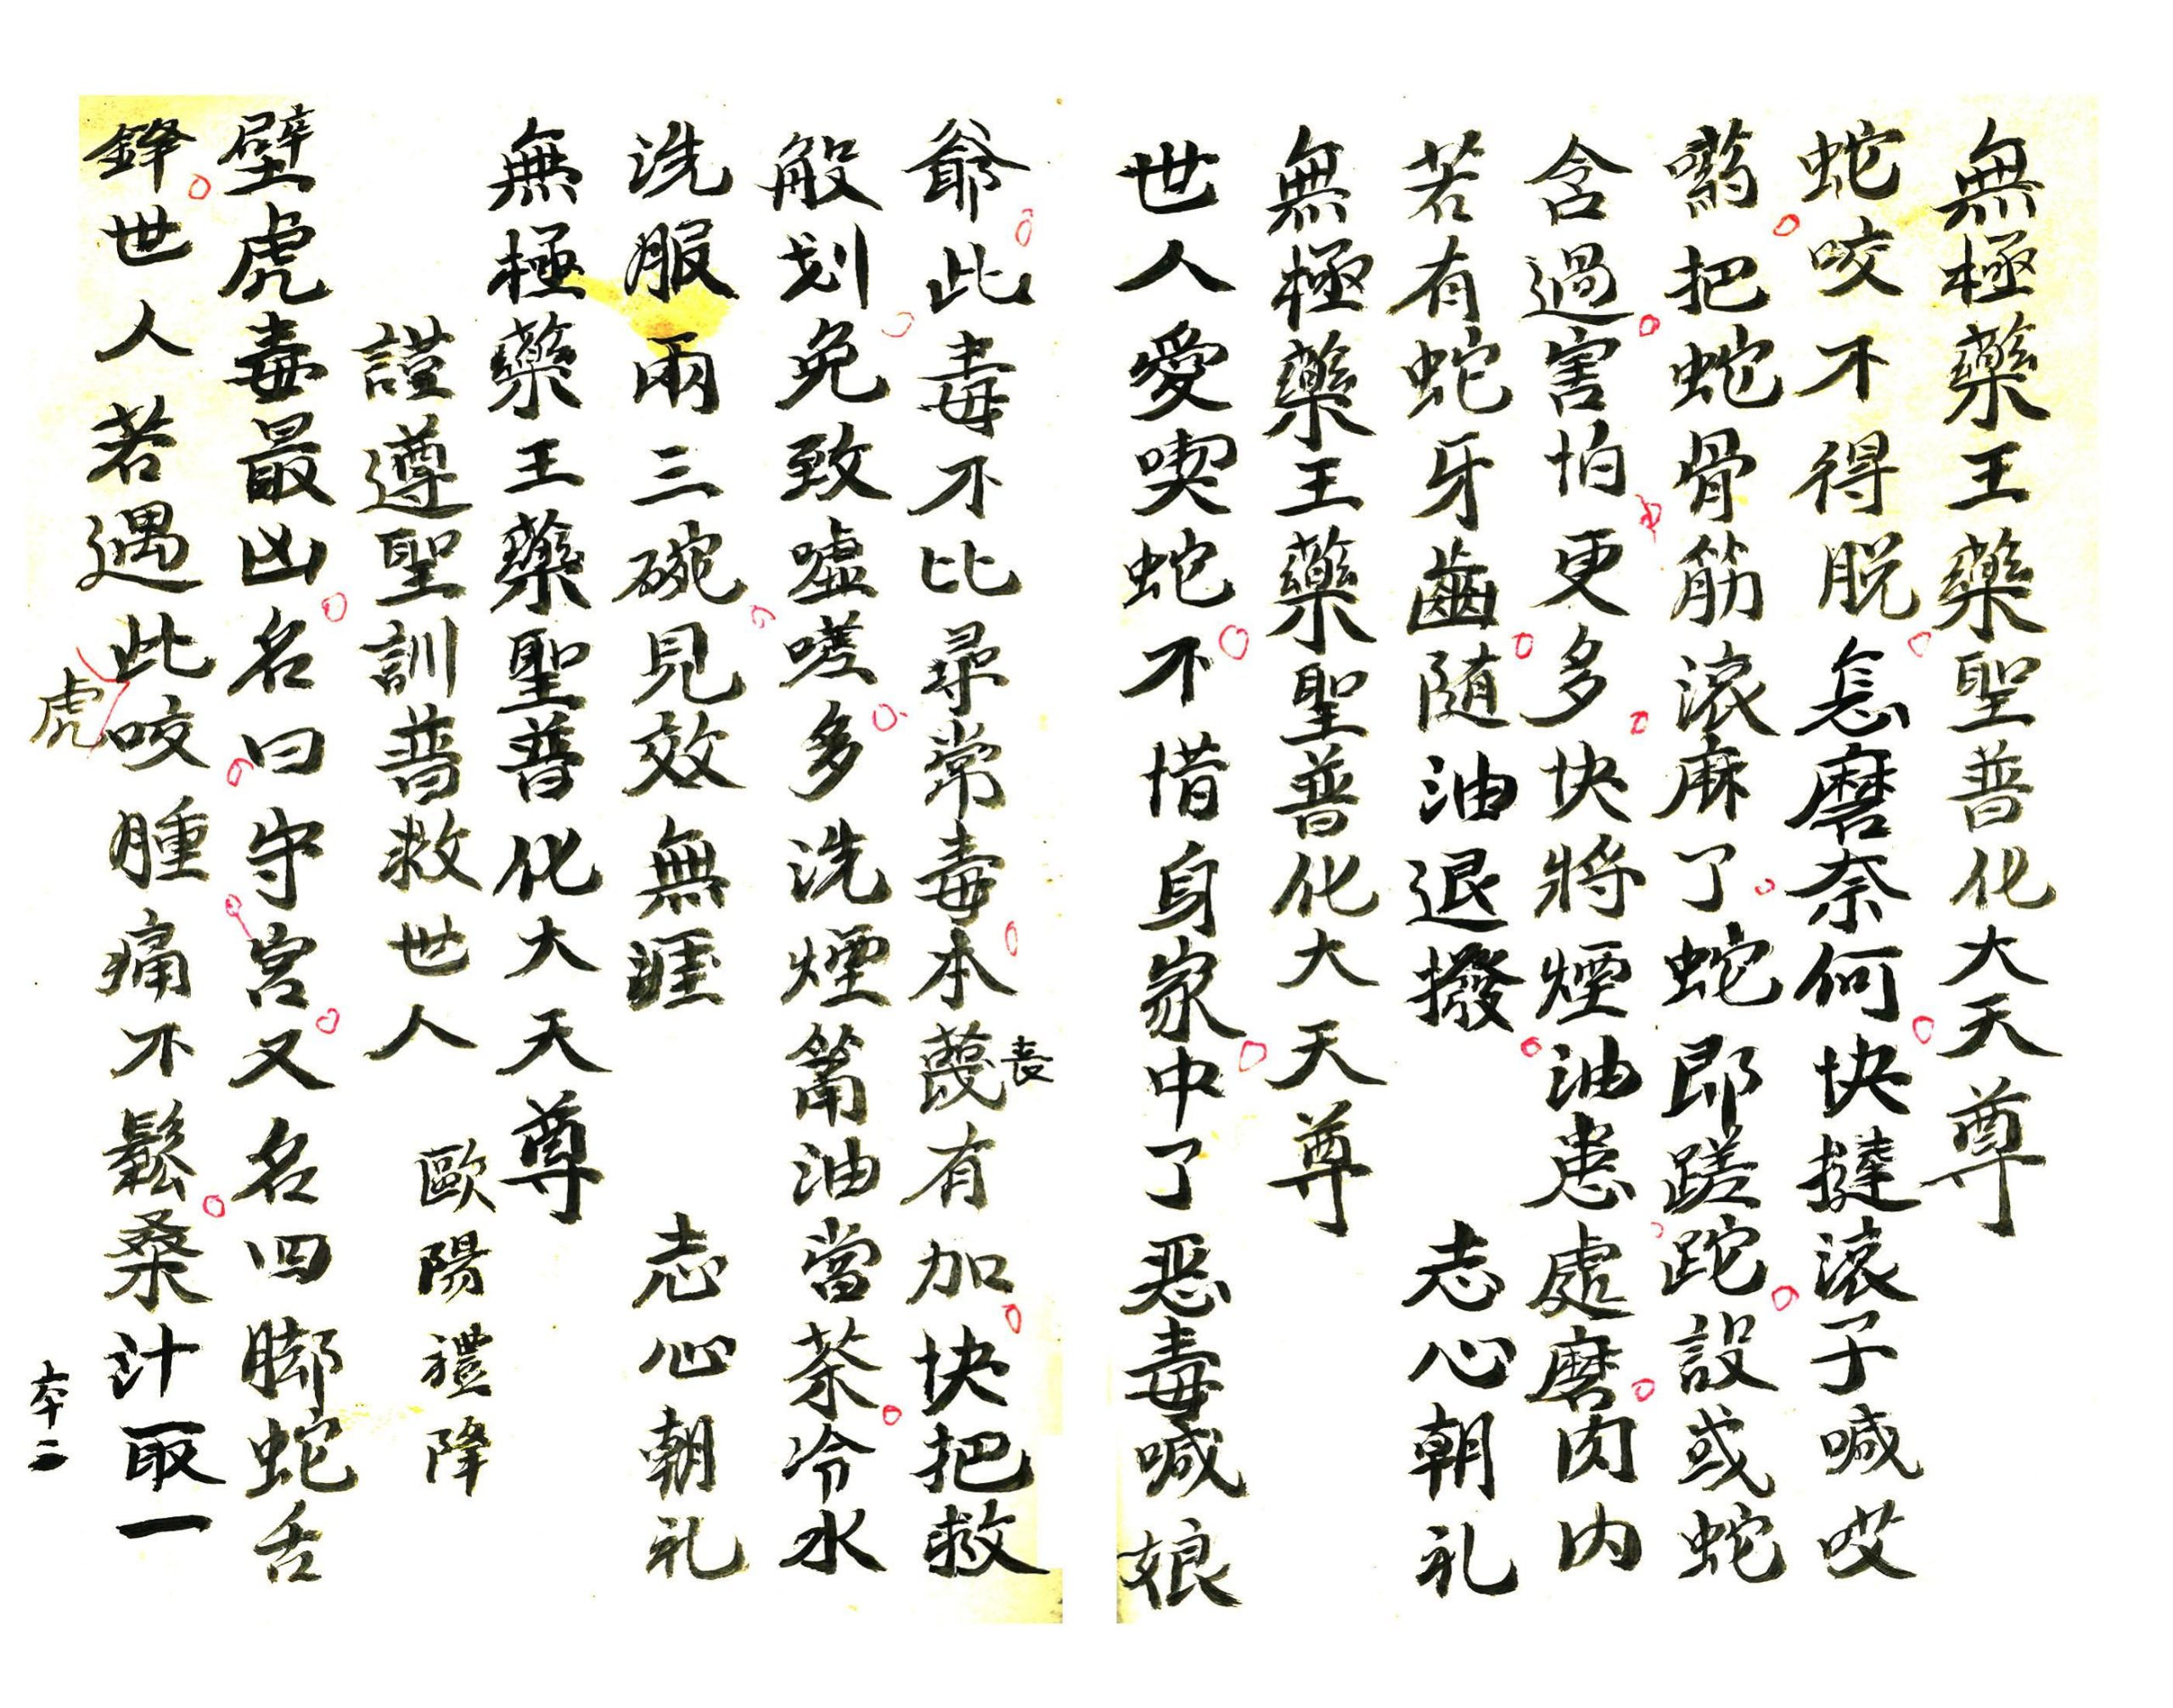 無極藥王藥聖普化大天尊
蛇咬不得脱怎磨奈何快撻滚子喊哎
把蛇骨筋滚麻了蛇即蹉跎設或蛇
含過害怕更多快將煙油患處磨肉内
若有蛇牙齒随油退撥 志心朝礼
無極藥王藥聖普化大天尊
世人愛喫蛇不惜身家中了恶毒喊娘
爺此毒不比尋常毒本蔑有加快把救
喪
般划免致嘘嗟多洗煙筩油當茶冷水
洗服兩三碗見效無涯 志心朝礼
無極藥王藥聖普化大天尊
謹遵聖訓普救世人 歐陽禮降
壁虎毒最凶名曰守宫又名四脚蛇舌
鋒世人若遇此咬腫痛不鬆桑汁取一
虎
六十二